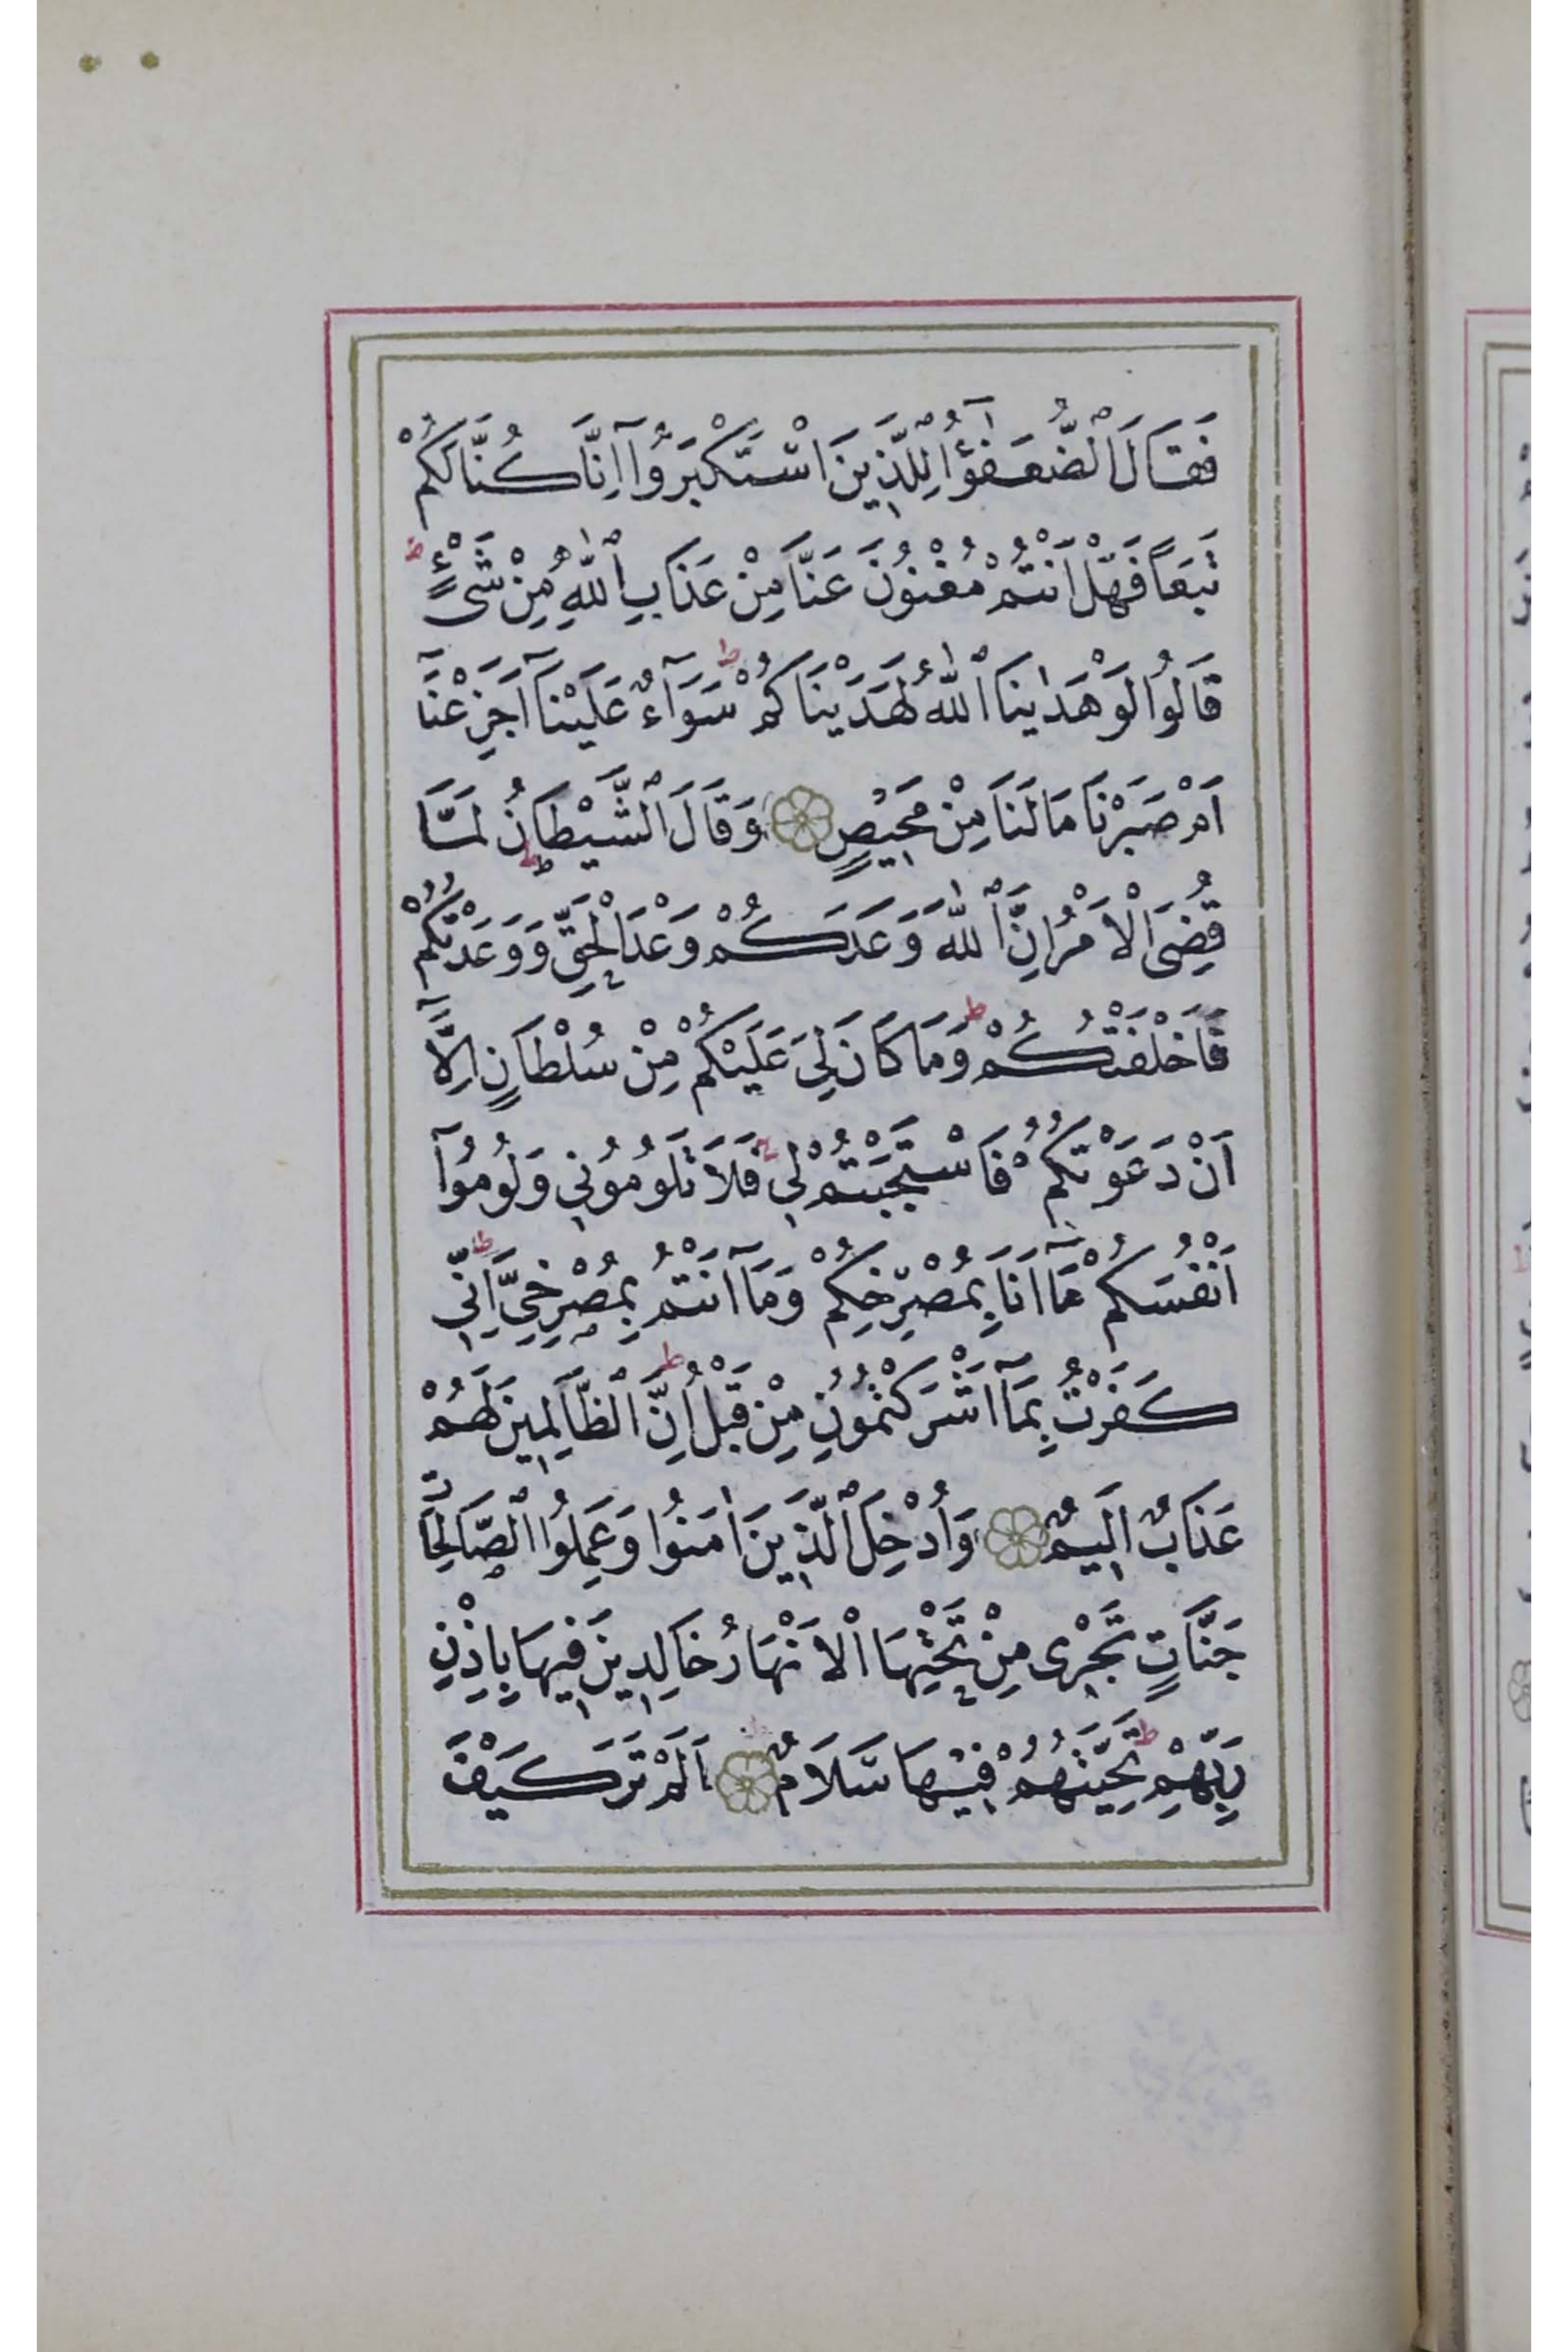 فَقَالَ ٱلضُّعَفٰٓؤُا لِلَّذِينَ اسْتَكْبَرُوٓا اِنَّا كُنَّا لَكُمْ
تَبَعًا فَهَلْ اَنْتُمْ مُغْنُونَ عَنَّا مِنْ عَذَابِ ٱللّٰهِ مِنْ شَىْءٍ ط
قَالُوا لَوْ هَدٰينَا ٱللّٰهُ لَهَدَيْنَاكُمْ ط سَوَآءٌ عَلَيْنَآ اَجَزِعْنَآ
اَمْ صَبَرْنَا مَا لَنَا مِنْ مَحِيصٍ وَقَالَ ٱلشَّيْطَانُ لَمَّا
قُضِىَ الْاَمْرُ اِنَّ ٱللّٰهَ وَعَدَكُمْ وَعْدَ الْحَقِّ وَوَعَدْتُكُمْ
فَاَخْلَفْتُكُمْ ط وَمَا كَانَ لِىَ عَلَيْكُمْ مِنْ سُلْطَانٍ اِلَّآ
اَنْ دَعَوْتُكُمْ فَاسْتَجَبْتُمْ لِي ج فَلَا تَلُومُونِي وَلُومُوٓا
اَنْفُسَكُمْ مَآ اَنَا بِمُصْرِخِكُمْ وَمَآ اَنْتُمْ بِمُصْرِخِىَّ ط اِنِّي
كَفَرْتُ بِمَآ اَشْرَكْتُمُونِ مِنْ قَبْلُ ط اِنَّ ٱلظَّالِمِينَ لَهُمْ
عَذَابٌ اَلِيمٌ وَاُدْخِلَ ٱلَّذِينَ اٰمَنُوا وَعَمِلُوا ٱلصَّالِحَاتِ
جَنَّاتٍ تَجْرِى مِنْ تَحْتِهَا الْاَنْهَارُ خَالِدِينَ فِيهَا بِاِذْنِ
رَبِّهِمْ ط تَحِيَّتُهُمْ فِيهَا سَلَامٌ اَلَمْ تَرَ كَيْفَ